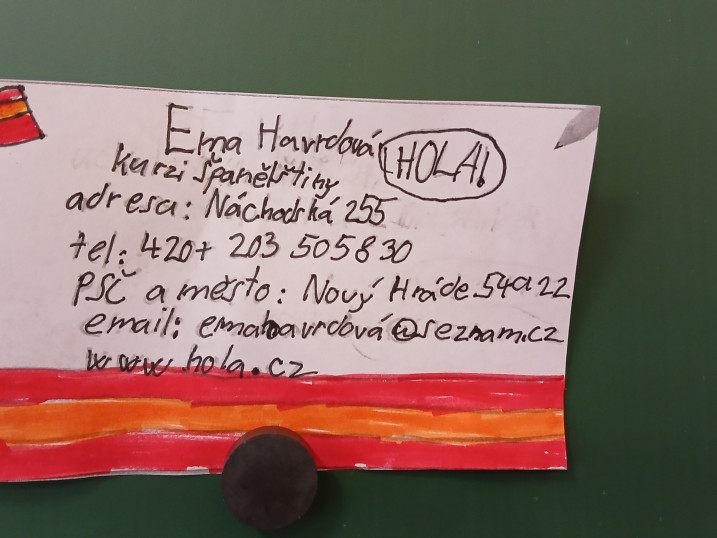 Ema Havrdová HOLA!
kurzi španělštiny
adresa: Náchodská 255
tel: 420+ 203 505830
PSČ a město: Nový Hráde 549 22
email: emahavrdová@seznam.cz
www.hola.cz